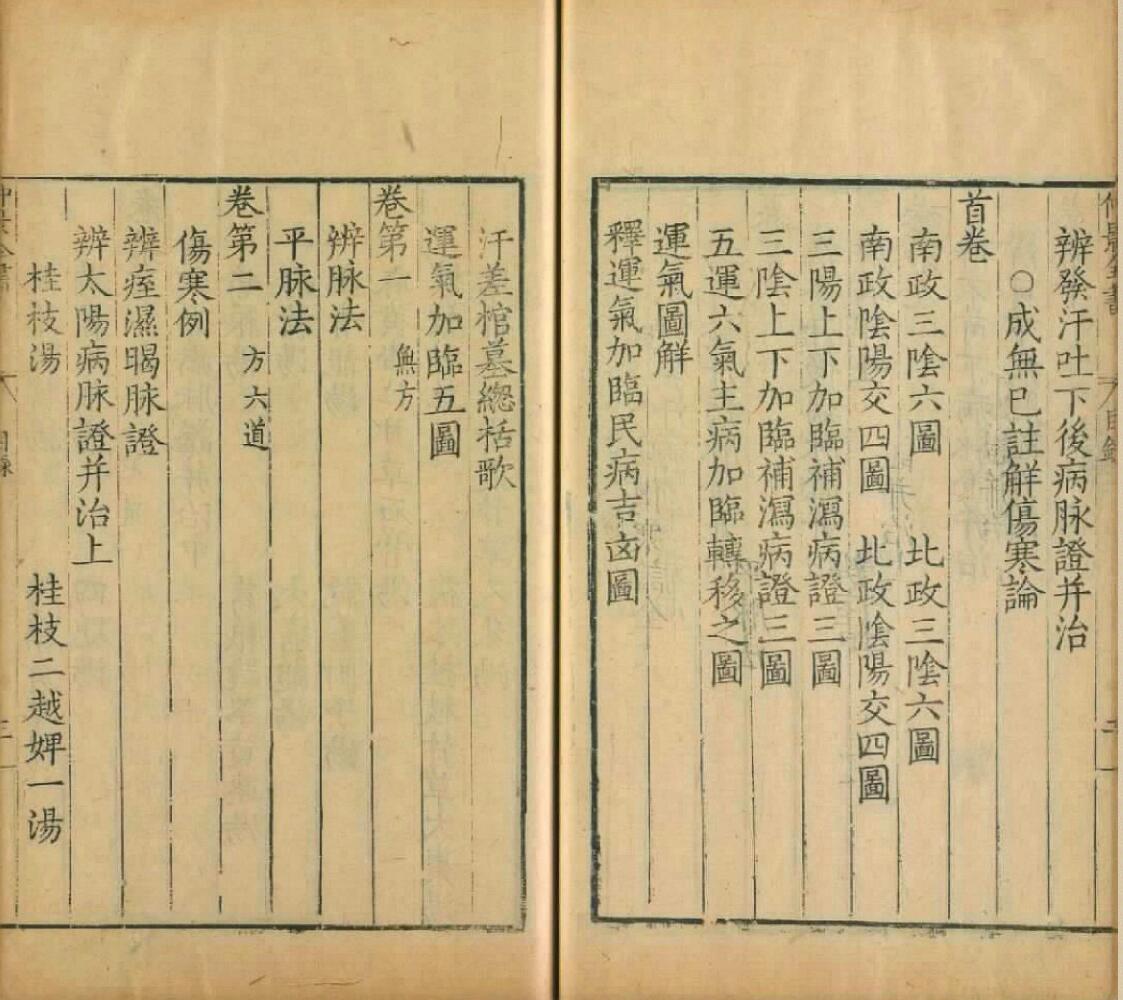 仲景全書 目錄
辨發汗吐下後病脉證并治
○成無已註解傷寒論
首卷
南政三陰六圖 北政三陰六圖
南政陰陽交四圖 北政陰陽交四圖
三陽上下加臨補瀉病證三圖
三陰上下加臨補瀉病證三圖
五運六氣主病加臨轉移之圖
運氣圖解
釋運氣加臨民病吉凶圖
汗差棺墓總括歌
運氣加臨五圖
卷第一 無方
辨脉法
平脉法
卷第二 方六道
傷寒例
辨痓濕暍脉證
辨太陽病脉證并治上
桂枝湯 桂枝二越婢一湯
仲景全書 目錄